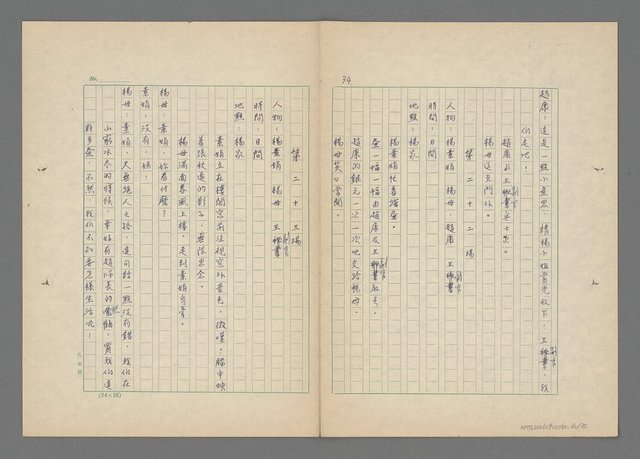 34
趙康：這是一點小意思，請楊小姐賞光收下，王副官，我
們走吧！
趙康和王副官等出。
楊母送至門外。
第二十二場
人物：楊素娟 楊母 趙康 王副官
時間：日間
地點：楊家
楊素娟忙着繡蠶。
蠶一幅一幅由趙康及王副官取去。
趙康的銀元一次一次地交給楊母。
楊母笑口常開。
No.
第二十三場
人物：楊素娟 楊母 王副官
時間：日間
地點：楊家
素娟立在樓閣窗前注視窗外景色，微嘆！腦中映
着張秋遠的影子，無限思念。
楊母滿面春風上樓，走到素娟身旁。
楊母：素娟，你看什麼？
素娟：沒有，媽！
楊母：素娟，天無絕人之路，這句話一點沒有錯，我們在
山窮水盡的時候，幸好有趙師長的幫，買我們這
許多蠶，不然，我們不知要怎樣生活呢！
(24×25)